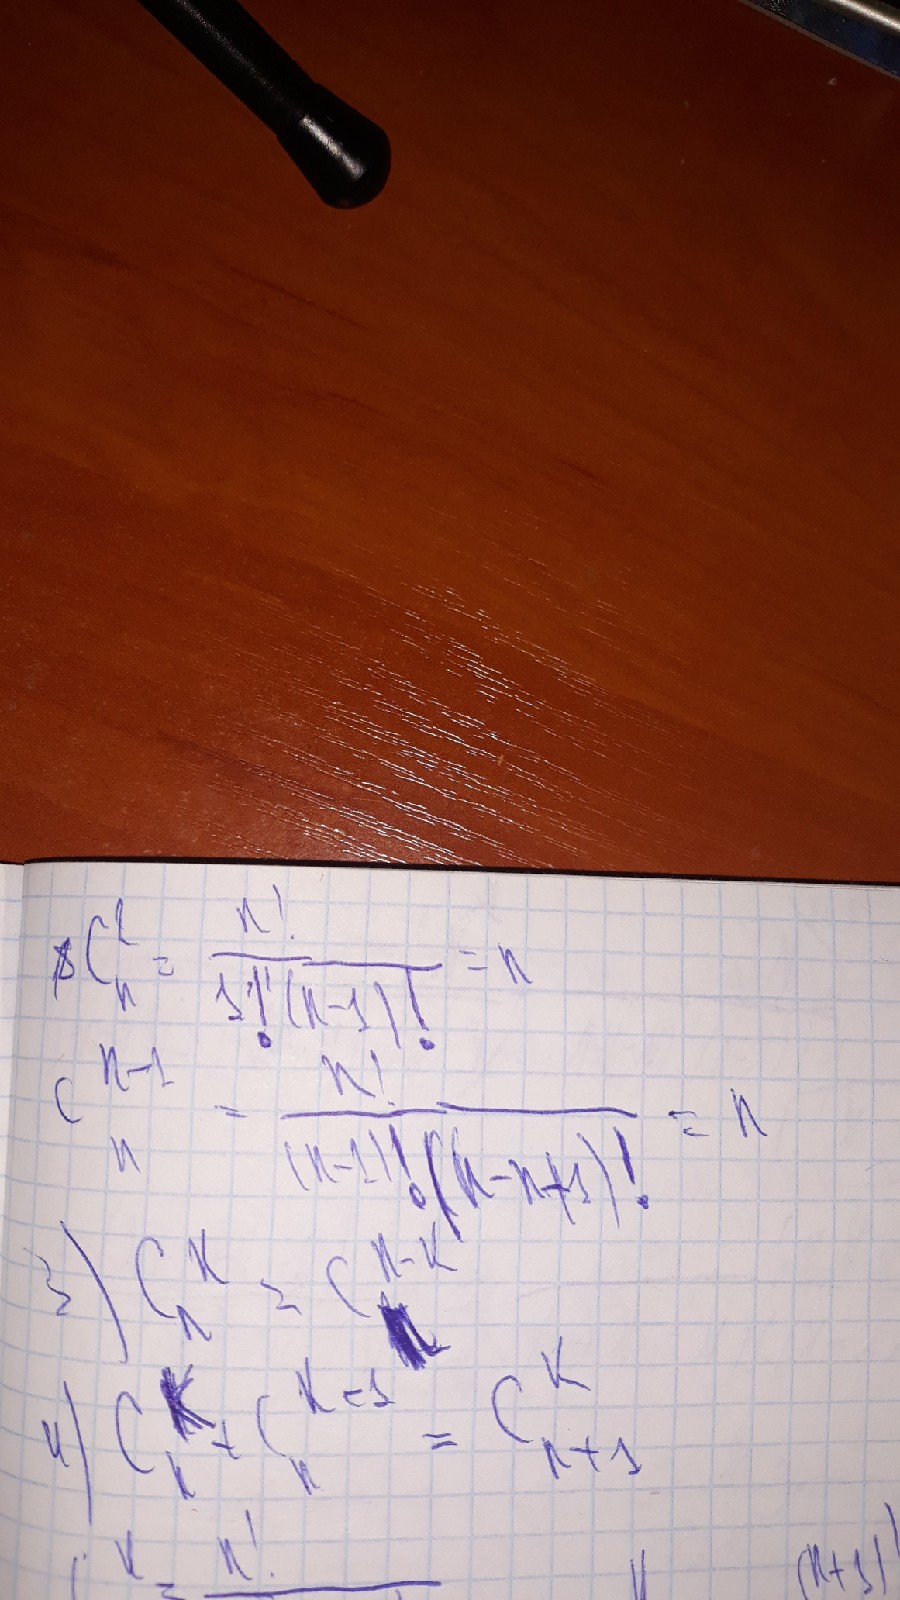 C_n^1 = n! / 1!(n-1)! = n
C_n^{n-1} = n! / (n-1)!(n-n+1)! = n
3) C_n^k = C_n^{n-k}
4) C_n^k + C_n^{k-1} = C_{n+1}^k
C^k = n! / k (n+1)!